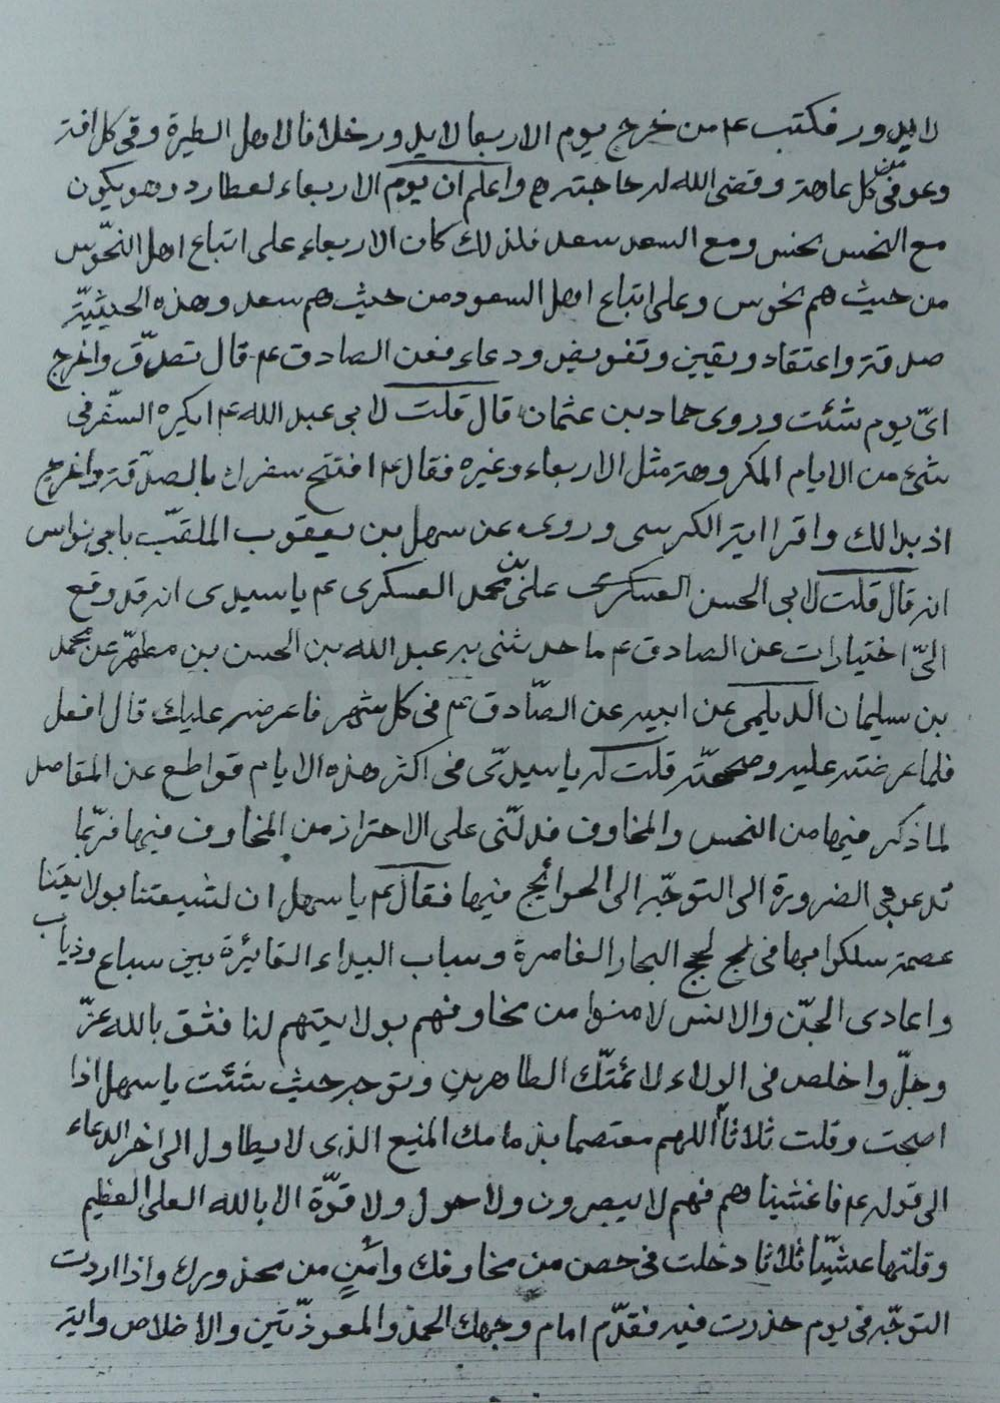 لا يدور فكتب ع م من خرج يوم الاربعا لا يدور خلافا لاهل الطيرة وقى كل افة
وعوفى من كل عاهة وقضى الله له حاجته ه واعلم ان يوم الاربعاء لعطارد وهو يكون
مع النحس نحس ومع السعد سعد فلذلك كان الاربعاء على اتباع اهل النحوس
من حيث هم نحوس وعلى اتباع اهل السعود من حيث هم سعد وهذه الحيثيّة
صدقة واعتقاد ويقين وتفويض ودعاء فعن الصادق ع م قال تصدّق واخرج
اىّ يوم شئت وروى حماد بن عثمان قال قلت لابى عبد الله ع م ايكره السّفر فى
شئ من الايام المكروهة مثل الاربعاء وغيره فقال ع م افتتح سفرك بالصدّقة واخرج
اذ بدا لك واقرا اية الكرسى وروى عن سهل بن يعقوب الملقّب بابى نواس
انه قال قلت لابى الحسن العسكرى علىّ بن محمد العسكرى ع م يا سيدى انه قد وقع
الىّ اختيارات عن الصادق ع م ما حدثنى به عبد الله بن الحسن بن مطهّر عن محمد
بن سليمان الديلمى عن ابيه عن الصّادق ع م فى كل شهر فاعرضه عليك قال افعل
فلما عرضته عليه وصححته قلت له يا سيدىّ فى اكثر هذه الايام قواطع عن المقاصد
لما ذكر فيها من النحس والمخاوف فدلّنى على الاحتراز من المخاوف فيها فربّما
تدعونى الضرورة الى التوجّه الى الحوائج فيها فقال ع م يا سهل ان لشيعتنا بولايتنا
عصمة سلكوا بها فى لجج البحار الغامرة وسباب البيداء الغائرة بين سباع وذياب
واعادى الجنّ والانس لامنوا من مخاوفهم بولايتهم لنا فثق بالله عزّ
وجلّ واخلص فى الولاء لائمتّك الطاهرين وتوجه حيث شئت يا سهل اذا
اصبحت وقلت ثلاثاً اللهم معتصما بذمامك المنيع الذى لا يطاول الى اخر الدعاء
الى قوله ع م فاغشيناهم فهم لا يبصرون ولا حول ولا قوّة الا بالله العلى العظيم
وقلتها عشيّا ثلاثا دخلت فى حصن من مخاوفك وأمنٍ من محذورك واذا اردت
التوجّه فى يوم حذرت فيه فقدّم امام وجهك الحمد والمعوذّتين والاخلاص واية